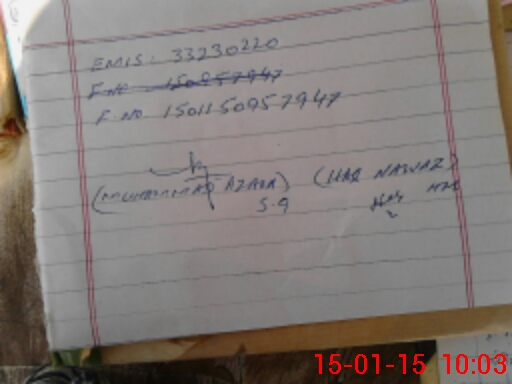 EMIS: 33230220
F.NO 150957947
F.NO. 1501150957947
(MUHAMMAD AZAM) (HAQ NAWAZ)
S.G
15-01-15 10:03